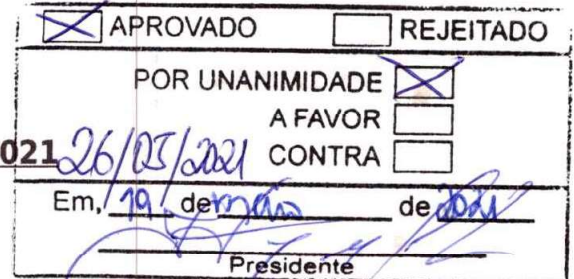 APROVADO REJEITADO
POR UNANIMIDADE
A FAVOR
021 26/05/2021 CONTRA
Em, 19 de maio de 2021
Presidente